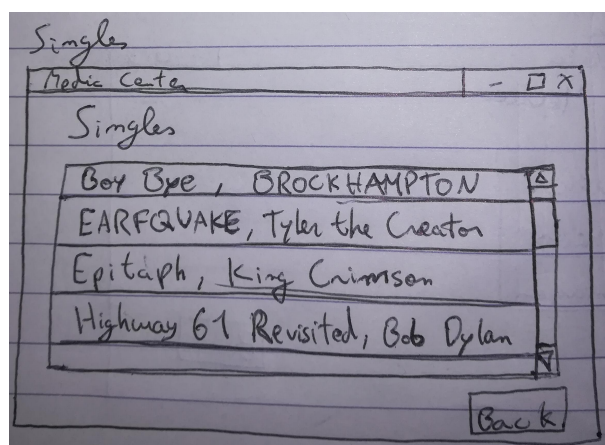 Singles
Media Center
Singles
Boy Bye, BROCKHAMPTON
EARFQUAKE, Tyler the Creator
Epitaph, King Crimson
Highway 61 Revisited, Bob Dylan
Back